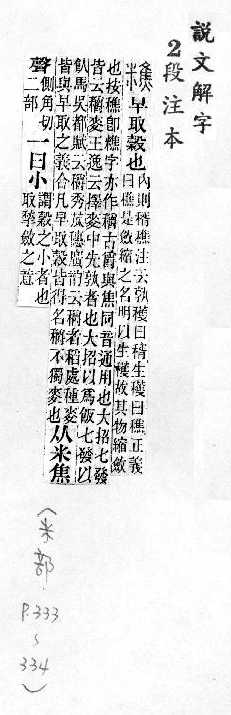 說文解字
2段注本
𥼚早取穀也內則稰穛注云孰穫曰稰生穫曰穛正義
曰穛是斂縮之名明以生穫故其物縮斂
也按穛卽𥼚字亦作穱古爵與焦同音通用也大招七發
皆云穱麥王逸云擇麥中先孰者也大招以爲飯七發以
飤馬吳都賦云穱秀菰穗廣韵云穱者稻處種麥
皆與早取之義合凡早取穀皆得名穱不獨麥也从米焦
聲側角切二部一曰小謂穀之小者也
取揫斂之意
(米部 P.333~334)